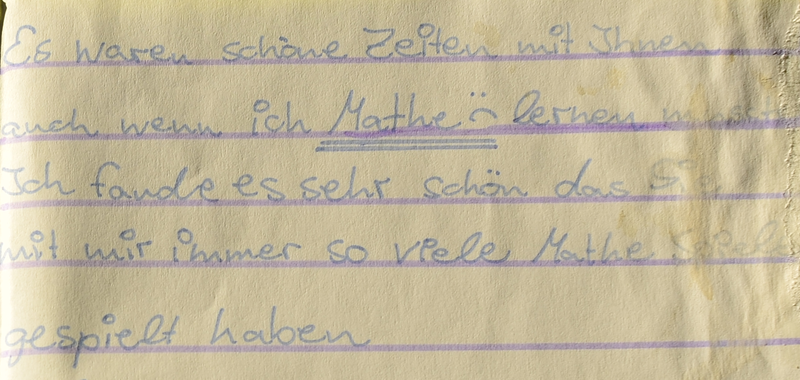 Es waren schöne Zeiten mit Ihnen
auch wenn ich Mathe lernen
Ich fande es sehr schön das Sie
mit mir immer so viele Mathe Spiele
gespielt haben